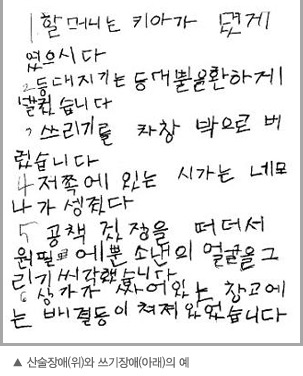 1 할머니는 키아가 몇게
였으시다
2 등대지기는 등대뿔을환하게
밝켰습니다
3 쓰리기를 카창 박으로 버
렸습니다
4 저쪽에 있는 시가는 네모
나가 생겼다
5 공책 짓장을 떠더서
원필로 에뿐 소낸의 얼굴을 그
리기 씨작했습니다
6 상가가 싸어있는 창고에
는 배결등이 켜져있었습니다
▲ 산술장애(위)와 쓰기장애(아래)의 예